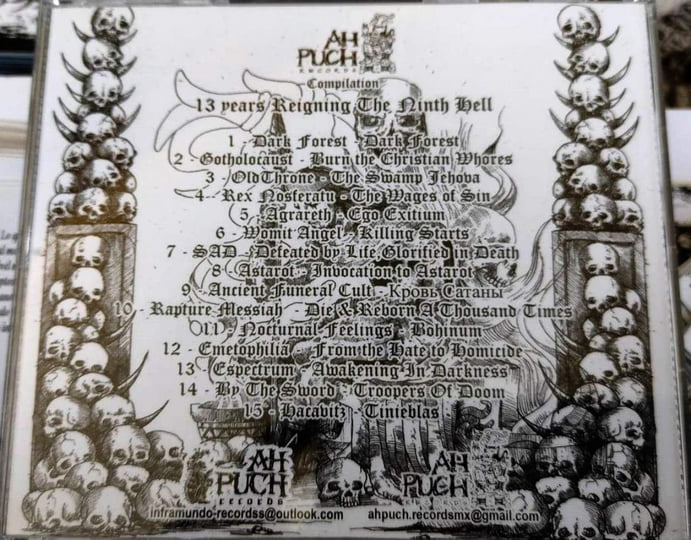 AH
PUCH
RECORDS
Compilation
13 years Reigning The Ninth Hell
1 - Dark Forest - Dark Forest
2 - Gotholocaust - Burn the Christian Whores
3 - OldThrone - The Swamp Jehova
4 - Rex Nosferatu - The Wages of Sin
5 - Agrareth - Ego Exitium
6 - Womit Angel - Killing Starts
7 - SAD - Defeated by Life, Glorified in Death
8 - Astarot - Invocation to Astarot
9 - Ancient Funeral Cult - Кровь Сатаны
10 - Rapture Messiah - Die & Reborn A Thousand Times
11 - Nocturnal Feelings - Bohinum
12 - Emetophilia - From the Hate to Homicide
13 - Espectrum - Awakening In Darkness
14 - By The Sword - Troopers Of Doom
15 - Hacavitz - Tinieblas
AH
PUCH
records
inframundo-recordss@outlook.com
AH
PUCH
ahpuch.recordsmx@gmail.com